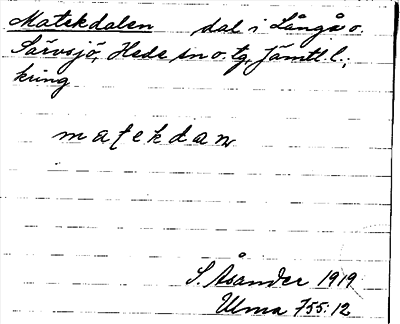 Matekdalen dal i Långå o.
Särvsjö, Hede sn o tg, Jämtl. l.;
kring
matekdan
S. Åsander 1919
Ulma 755:12